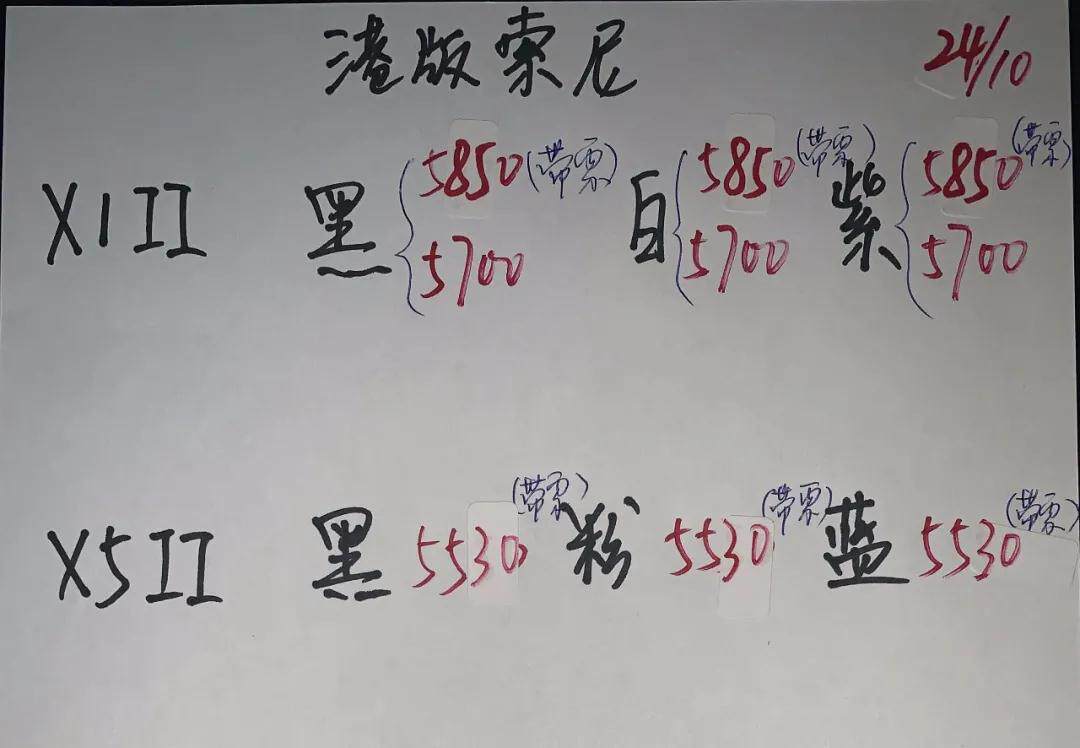 港版索尼 24/10
X1II 黑 5850(带票) 白 5850(带票) 紫 5850(带票)
5700 5700 5700
X5II 黑 5530(带票) 粉 5530(带票) 蓝 5530(带票)